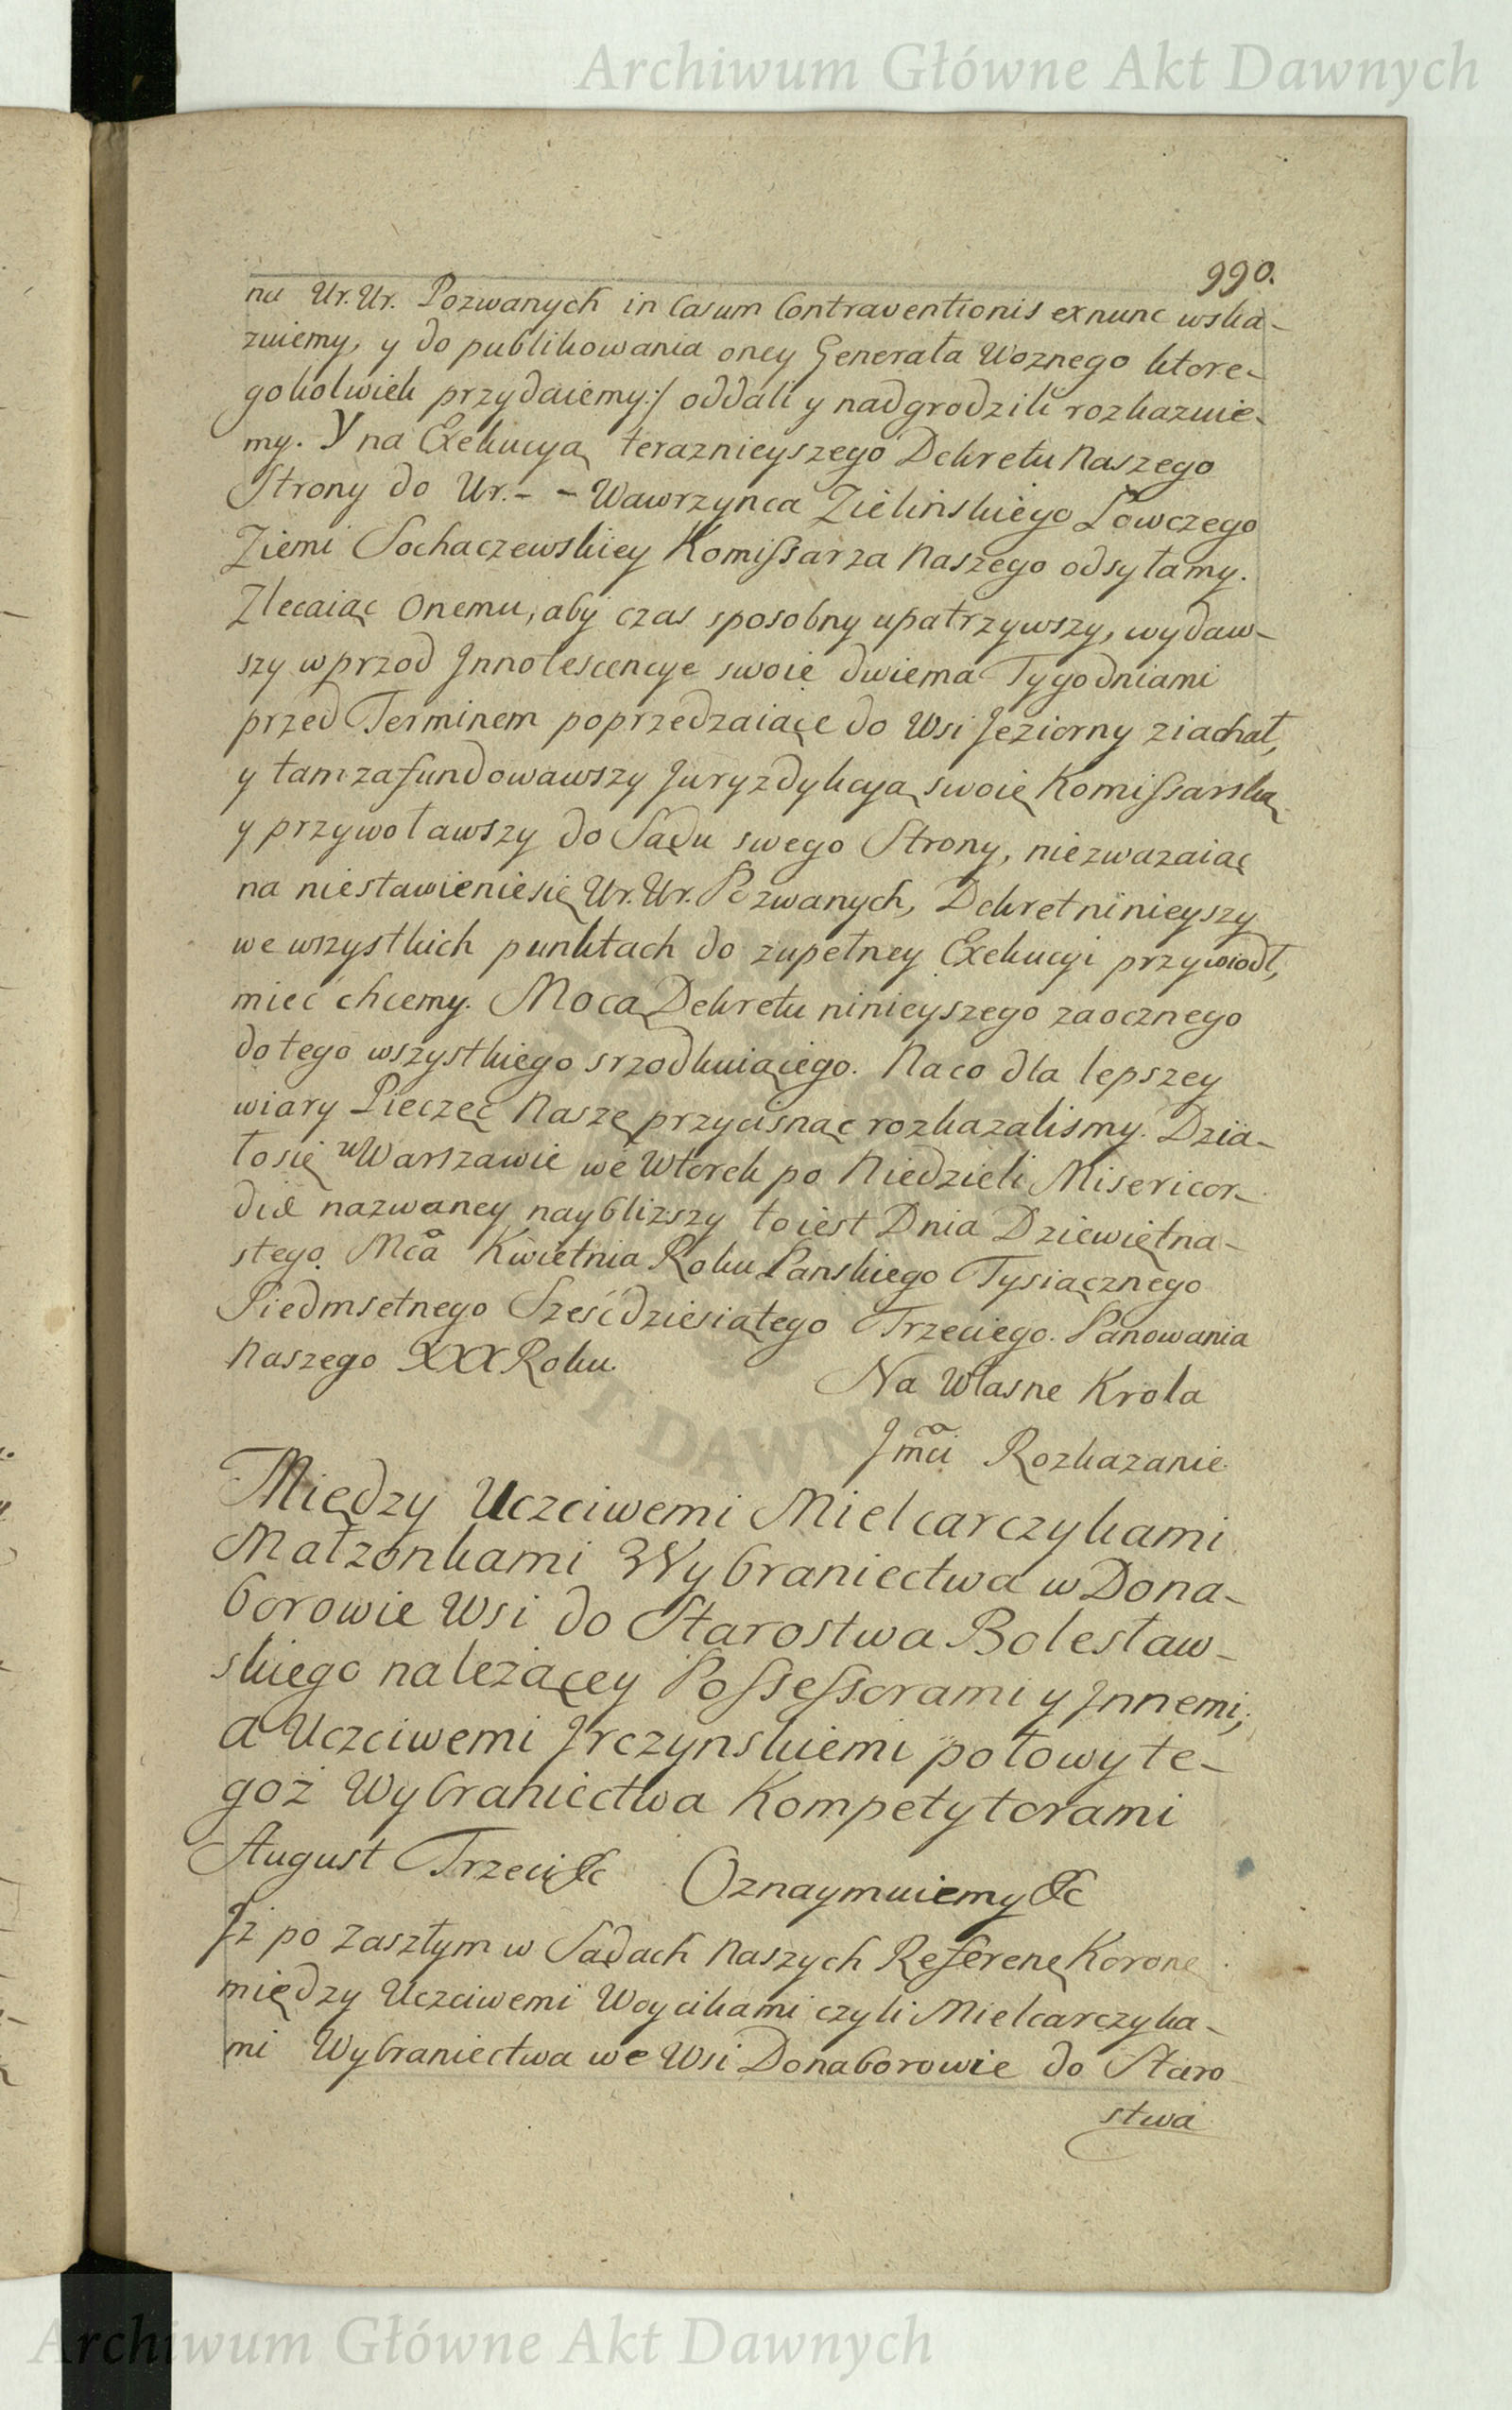 Archiwum Główne Akt Dawnych
990.
na Ur. Ur. Pozwanych in Casum Contraventionis exnunc wska-
zuiemy, y do publikowania oney Generała Woznego ktore-
gokolwiek przydaiemy:/ oddali y nadgrodzili rozkazuie-
my. Y na Exekucyą teraznieyszego Dekretu Naszego
Strony do Ur. - - Wawrzynca Zielińskiego Łowczego
Ziemi Sochaczewskiey Komissarza Naszego odsyłamy.
Zlecaiąc Onemu, aby czas sposobny upatrzywszy, wydaw-
szy wprzod Innotescencye swoie dwiema Tygodniami
przed Terminem poprzedzaiące do Wsi Jeziorny ziachał,
y tam zafundowawszy Juryzdykcyą swoię Komissarską
y przywoławszy do Sądu swego Strony, niezwazaiąc
na niestawieniesię Ur. Ur. Pozwanych, Dekret ninieyszy
we wszystkich punktach do zupełney Exekucyi przywiodł,
miec chcemy. Mocą Dekretu ninieyszego zaocznego
do tego wszystkiego srzodkuiącego. Naco dla lepszey
wiary Pieczęc Naszę przycisnąc rozkazalismy. Dzia-
łosię w Warszawie we Wtorek po Niedzieli Misericor-
diæ nazwaney naybliższy toiest Dnia Dziewiętna-
stego. Mca Kwietnia Roku Panskiego Tysiącznego
Siedmsetnego Sześćdziesiątego Trzeciego. Panowania
Naszego XXX Roku.
Na Własne Krola
Jmci Rozkazanie
Między Uczciwemi Mielcarczykami
Małzonkami Wybraniectwa w Dona-
borowie Wsi do Starostwa Bolesław-
skiego należącey Possessorami y Innemi;
a Uczciwemi Jrczynskiemi połowy te-
goż Wybraniectwa Kompetytorami
August Trzeci &c Oznaymuiemy &c
Jż po zaszłym w Sądach Naszych Referen Koron
między Uczciwemi Woycikami czyli Mielcarczyka-
mi Wybraniectwa we Wsi Donaborowie do Staro
stwa
Archiwum Główne Akt Dawnych